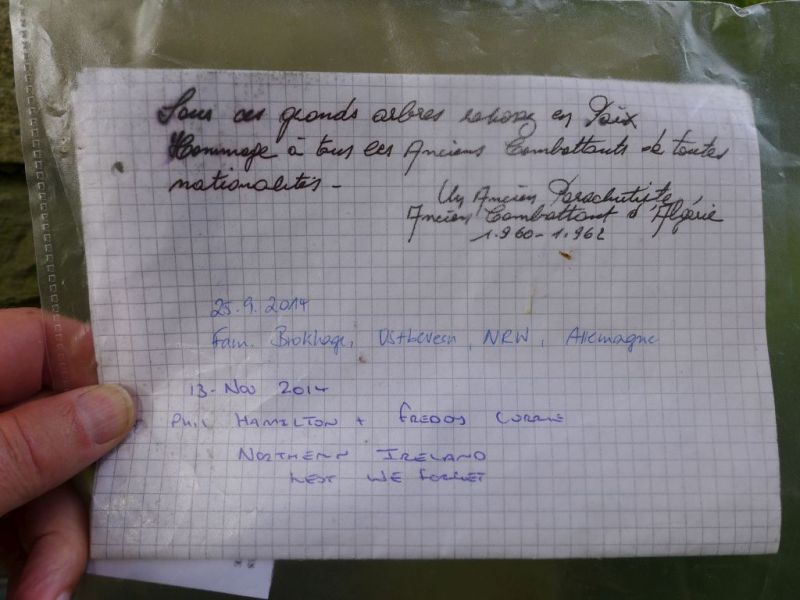 Sous ces grands arbres reposez en Paix
Hommage à tous les Anciens Combattants de toutes
nationalités -
Un Ancien Parachutiste
Ancien Combattant d'Algérie
1.960 - 1.962
25.9.2014
Fam. Brokhage, Ostbevern, NRW, Allemagne
13 - Nov 2014
PHIL HAMILTON + FREDDY CORRIE
NORTHERN IRELAND
LEST WE FORGET